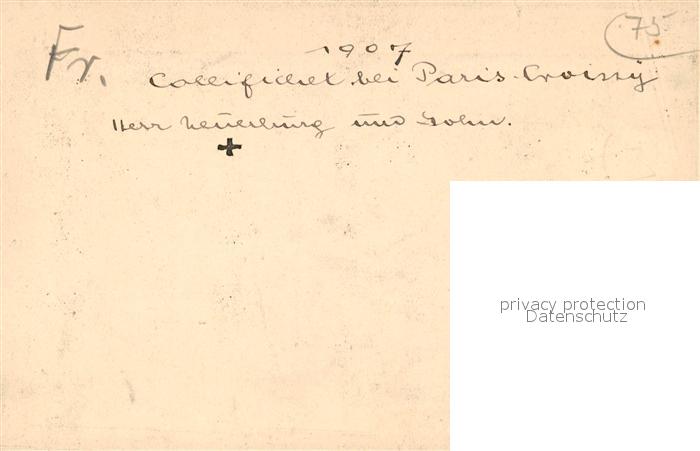 Fr.
75
1907
Collifichet bei Paris-Croissy
Herr Neuerburg und Sohn.
privacy protection
Datenschutz